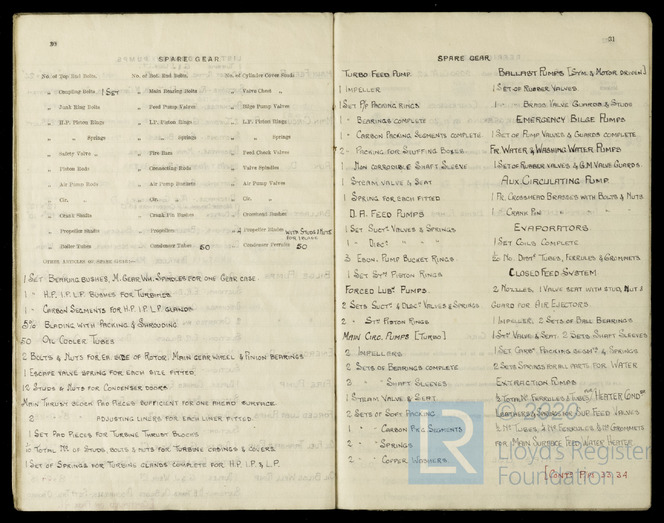 30
SPARE GEAR
No. of Top End Bolts, No. of Bot. End Bolts, No. of Cylinder Cover Studs
„ Coupling Bolts 1 SET „ Main Bearing Bolts „ Valve Chest „
„ Junk Ring Bolts „ Feed Pump Valves „ Bilge Pump Valves
„ H.P. Piston Rings „ I.P. Piston Rings „ L.P. Piston Rings
„ „ Springs „ „ Springs „ „ Springs
„ Safety Valve „ „ Fire Bars „ Feed Check Valves
„ Piston Rods „ Connecting Rods „ Valve Spindles
„ Air Pump Rods „ Air Pump Buckets „ Air Pump Valves
„ Cir. „ „ Cir. „ „ Cir. „
„ Crank Shafts „ Crank Pin Bushes „ Crosshead Bushes
„ Propeller Shafts „ Propellers „ Propeller Blades WITH STUDS & NUTS FOR 1 BLADE
„ Boiler Tubes „ Condenser Tubes 50 „ Condenser Ferrules 50
OTHER ARTICLES OF SPARE GEAR:—
1 SET BEARING BUSHES, M. GEAR WM. SPINDLES FOR ONE GEAR CASE
1 „ H.P. I.P. L.P. BUSHES FOR TURBINES
1 „ CARBON SEGMENTS FOR H.P. I.P. L.P. GLANDS
5% BLADING WITH PACKING & SHROUDING
50 OIL COOLER TUBES
2 BOLTS & NUTS FOR EA. SIZE OF ROTOR, MAIN GEAR WHEEL & PINION BEARINGS
1 ESCAPE VALVE SPRING FOR EACH SIZE FITTED
12 STUDS & NUTS FOR CONDENSER DOORS
MAIN THRUST BLOCK PAD PIECES SUFFICIENT FOR ONE AHEAD SURFACE
2 ADJUSTING LINERS FOR EACH LINER FITTED
1 SET PAD PIECES FOR TURBINE THRUST BLOCKS
TOTAL NO. OF STUDS, BOLTS & NUTS FOR TURBINE CASINGS & COVERS
1 SET OF SPRINGS FOR TURBINE GLANDS COMPLETE FOR H.P. I.P. & L.P.
31
SPARE GEAR
TURBO FEED PUMP
1 IMPELLER
1 SET P/P PACKING RINGS
1 „ BEARINGS COMPLETE
1 „ CARBON PACKING SEGMENTS COMPLETE
2 „ PACKING FOR STUFFING BOXES
1 NON CORRODIBLE SHAFT SLEEVE
1 STEAM VALVE & SEAT
1 SPRING FOR EACH FITTED
D.A. FEED PUMPS
1 SET SUCTN VALVES & SPRINGS
1 „ DISCH „ „ „
3 EBON. PUMP BUCKET RINGS
1 SET STM PISTON RINGS
FORCED LUBT PUMPS.
2 SETS SUCTN & DISCH VALVES & SPRINGS
2 „ STM PISTON RINGS
MAIN CIRC. PUMPS [TURBO]
2 IMPELLERS
2 SETS OF BEARINGS COMPLETE
3 „ SHAFT SLEEVES
1 STEAM VALVE & SEAT
2 SETS OF SOFT PACKING
1 „ „ CARBON PKG SEGMENTS
2 „ „ SPRINGS
2 „ „ COPPER WASHERS
BALLAST PUMPS [STM. & MOTOR DRIVEN]
1 SET OF RUBBER VALVES
1 „ BRASS VALVE GUARDS & STUDS
EMERGENCY BILGE PUMPS
1 SET OF PUMP VALVES & GUARDS COMPLETE
FR. WATER & WASHING WATER PUMPS
1 SET OF RUBBER VALVES & G.M. VALVE GUARDS.
AUX. CIRCULATING PUMP
1 PR. CROSSHEAD BRASSES WITH BOLTS & NUTS
1 „ CRANK PIN „ „ „
EVAPORATORS
1 SET COILS COMPLETE
NO. DISTR TUBES, FERRULES & GROMMETS
CLOSED FEED SYSTEM
2 NOZZLES, 1 VALVE SEAT WITH STUD, NUT &
GUARD FOR AIR EJECTORS.
1 IMPELLER, 2 SETS OF BALL BEARINGS
1 STM VALVE & SEAT. 2 SETS SHAFT SLEEVES
1 SET CARBN PACKING SEGMTS & SPRINGS
2 SETS SPRINGS FOR ALL PARTS FOR WATER
EXTRACTION PUMPS
TOTAL NO. FERRULES & TUBES FOR HEATER CONDR
LEATHERS & SPRINGS FOR SUP. FEED VALVES
NO. TUBES, NO. FERRULES & GROMMETS
FOR MAIN SURFACE FEED WATER HEATER
[CONTD P.P. 33, 34
© 2020
LR
Lloyd's Register
Foundation